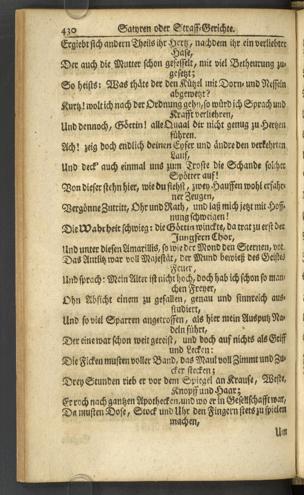 430 Satyren oder Straff-Gerichte.
Ergiebt sich andern Theils ihr Hertz, nachdem ihr ein verliebter
Hase,
Der auch die Mutter schon gefesselt, mit viel Betheurung zu-
gesetzt;
So heists: Was thäte der den Kützel mit Dorn und Nesseln
abgewetzt?
Kurtz! wolt ich nach der Ordnung gehn, so würd ich Sprach und
Krafft verliehren,
Und dennoch, Göttin! alle Quaal dir nicht genug zu Hertzen
führen.
Ach! zeig doch endlich deinen Eyfer und ändre den verkehrten
Lauf,
Und deck' auch einmal uns zum Troste die Schande solcher
Spötter auf!
Von dieser stehn hier, wie du siehst, zwey Hauffen wohl erfahr-
ner Zeugen,
Vergönne Zutritt, Ohr und Rath, und laß mich jetzt mit Hoff-
nung schweigen!
Die Wahrheit schwieg: die Göttin winckte, da trat zu erst der
Jungfern Chor,
Und unter diesen Amarillis, so wie der Mond den Sternen, vor.
Das Antlitz war voll Majestät, der Mund bewieß des Geistes
Feuer,
Und sprach: Mein Alter ist nicht hoch, doch hab ich schon so man-
chen Freyer,
Ohn Absicht einem zu gefallen, genau und sinnreich aus-
studiert,
Und so viel Sparren angetroffen, als hier mein Ausputz Na-
deln führt,
Der eine war schon weit gereist, und doch auf nichts als Griff
und Lecken:
Die Ficken musten voller Band, das Maul voll Zimmt und Zu-
cker stecken;
Drey Stunden rieb er vor dem Spiegel an Krause, Weste,
Knopff und Haar;
Er roch nach gantzen Apothecken, und wo er in Gesellschafft war,
Da musten Dose, Stock und Uhr den Fingern stets zu spielen
machen,